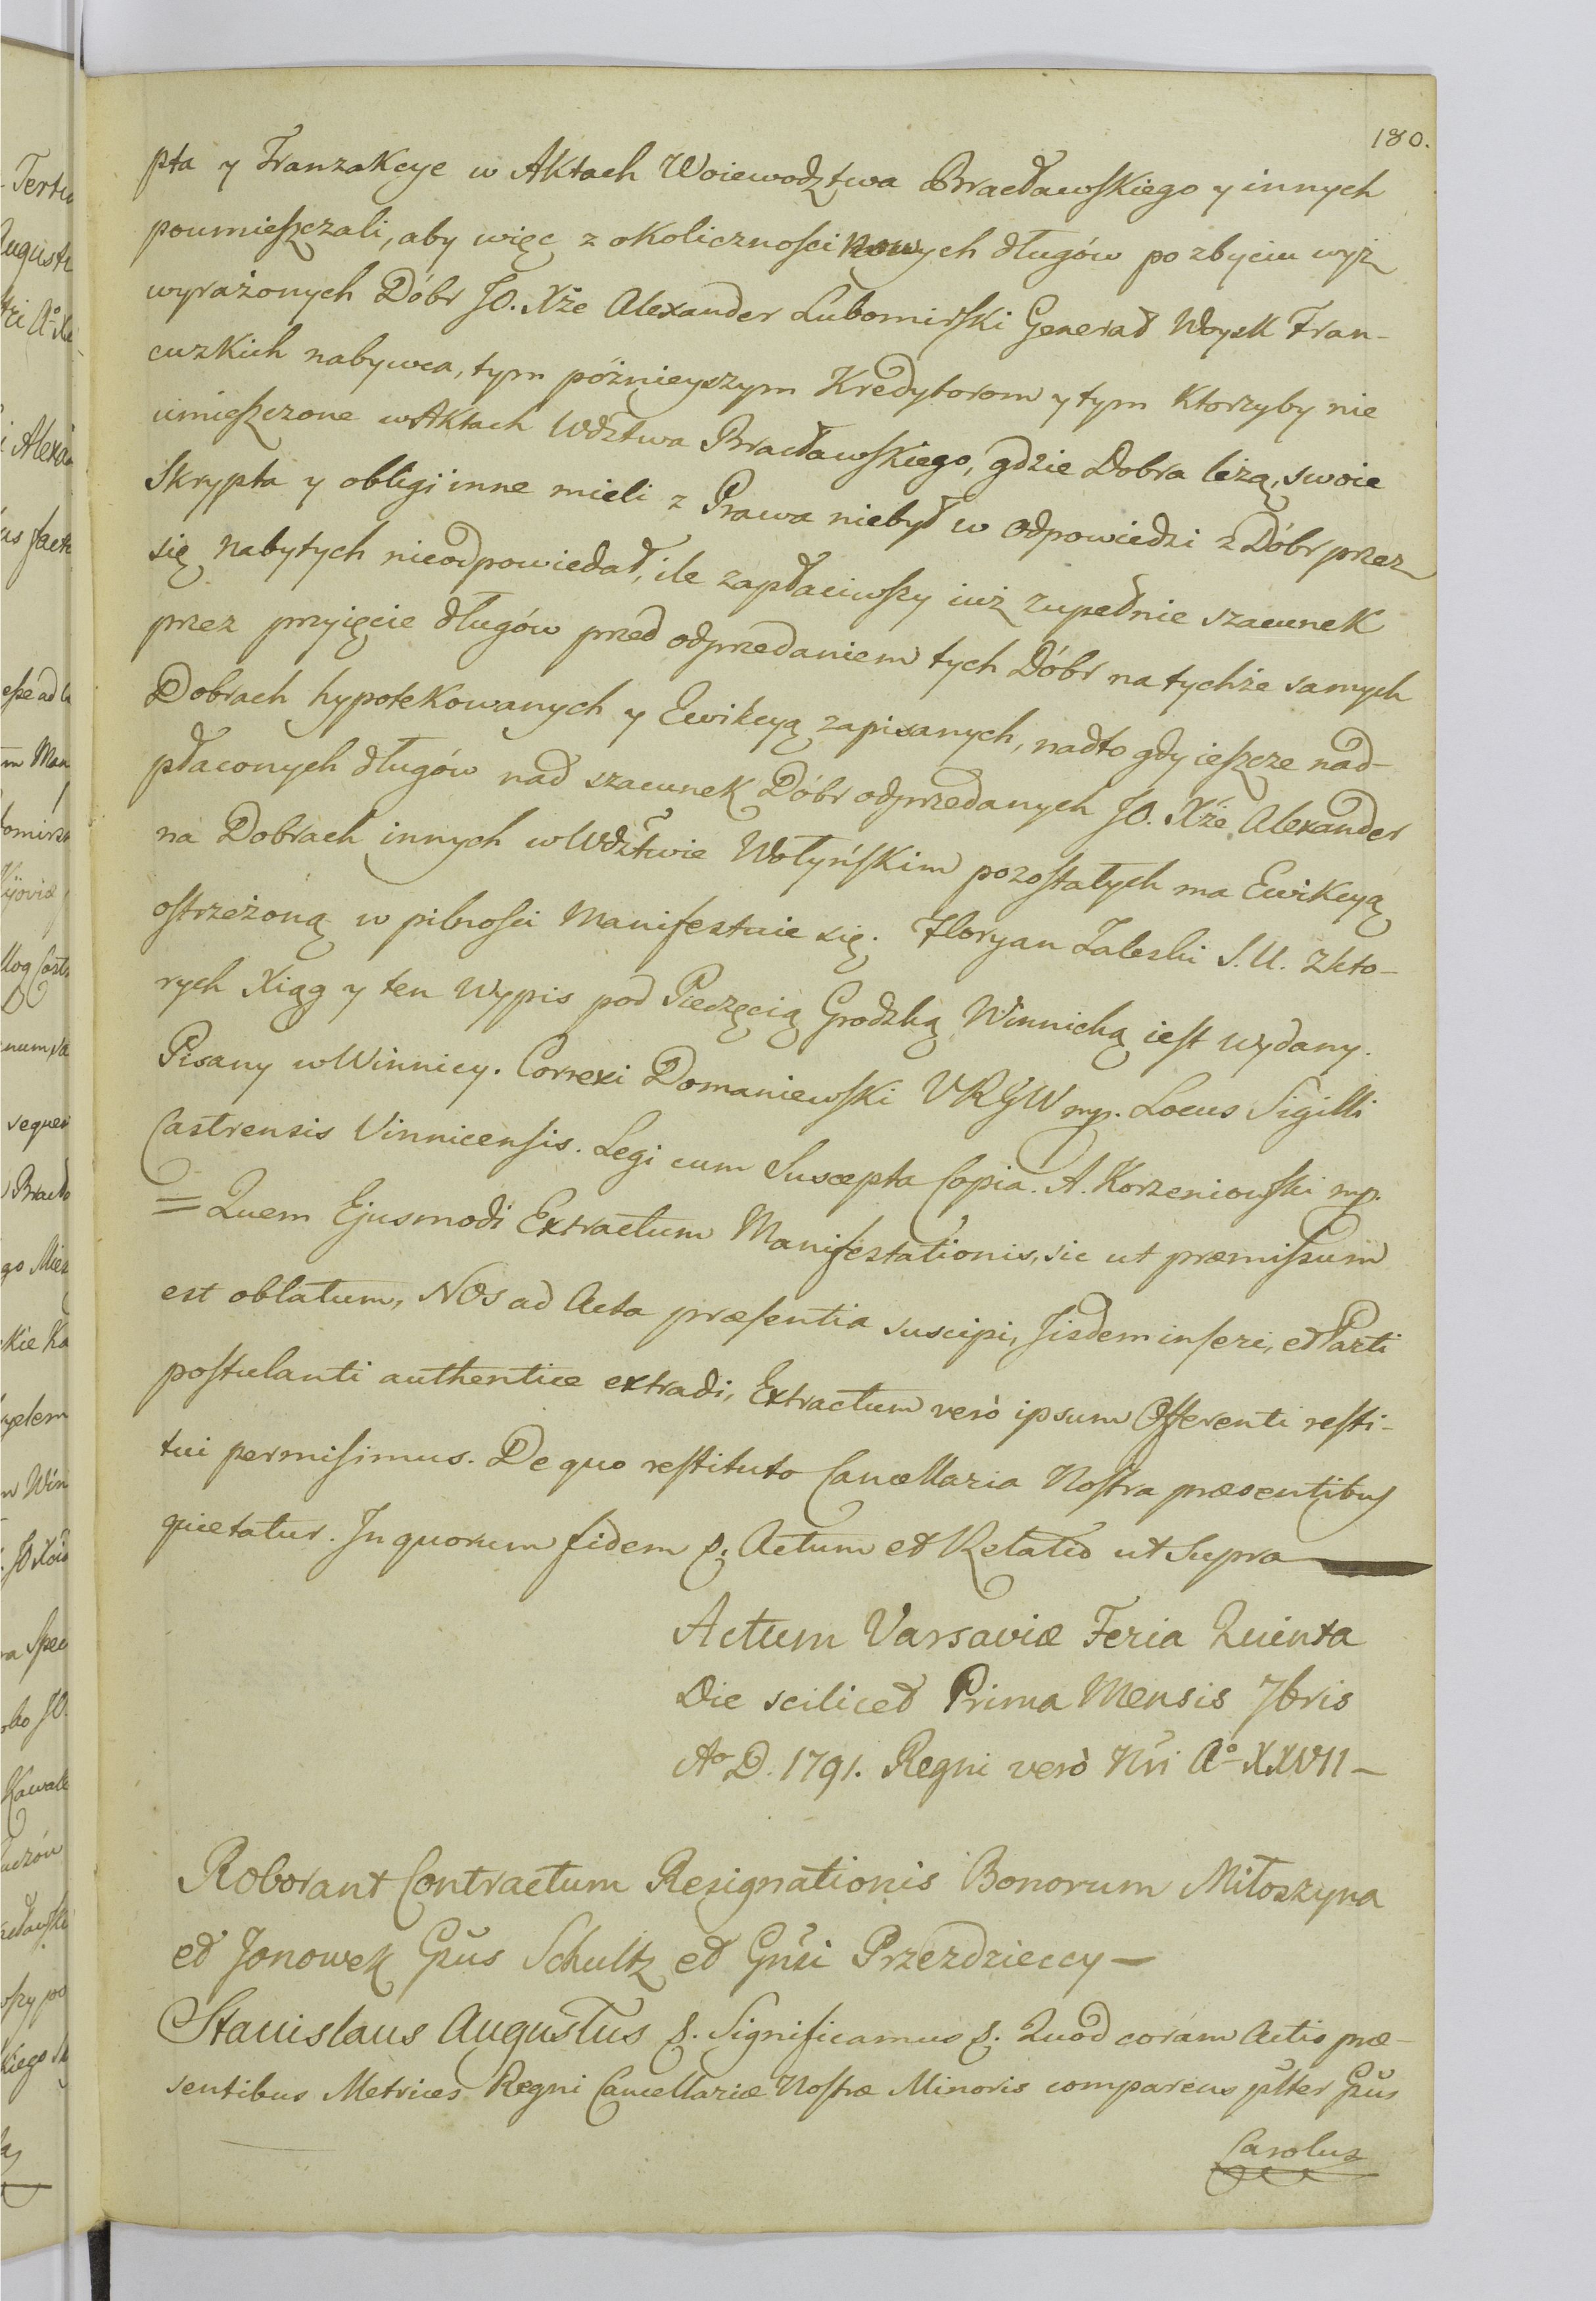 180.
pta y Tranzakcye w Aktach Woiewodztwa Bracławskiego y innych
poumieszczali, aby więc z okoliczności nowych długów po zbyciu wyż
wyrażonych Dóbr JO. Xże Alexander Lubomirski Generał Woysk Fran-
cuzkich nabywca, tym późnieyszym Kredytorom y tym ktorzyby nie
umieszczone w Aktach Wdztwa Bracławskiego, gdzie Dobra leżą, swoie
Skrypta y obligi inne mieli z Prawa niebył w odpowiedzi z Dóbr przez
się nabytych nieodpowiedał, ile zapłaciwszy iuż zupełnie szacunek
przez przyięcie długów przed odprzedaniem tych Dóbr na tychże samych
Dobrach hypotekowanych y Ewikcyą zapisanych, nadto gdy ieszcze nad-
płaconych długów nad szacunek Dóbr odprzedanych JO. Xże Alexander
na Dobrach innych w Wdztwie Wołyńskim pozostałych ma Ewikcyą
ostrzeżoną w pilności Manifestuie się. Floryan Zaleski S. U. Zkto-
rych Xiąg y ten Wypis pod Pieczęcią Grodzką Winnicką iest wydany.
Pisany w Winnicy. Correxi Domaniewski VRGW mp. Locus Sigilli
Castrensis Vinnicensis. Legi cum Suscepta Copia. A. Korzeniowski mp.
= Quem Ejusmodi Extractum Manifestationis, sic ut præmissum
est oblatum, Nos ad Acta præsentia suscipi, Jisdem inseri, et Parti
postulanti authentice extradi, Extractum verò ipsum Offerenti resti-
tui permisimus. De quo restituto Cancellaria Nostra præsentibus
quietatur. In quorum fidem &. Actum et Relatio ut Supra
Actum Varsaviæ Feria Quinta
Die scilicet Prima Mensis 7bris
Ao D. 1791. Regni verò Nri Ao XXVII —
Roborant Contractum Resignationis Bonorum Miłoszyna
et Jonowek Gnus Schultz et Gnsi Przezdzieccy —
Stanislaus Augustus &. Significamus &. Quod coram Actis præ-
sentibus Metrices Regni Cancellariæ Nostræ Minoris comparens plter Gnus
Carolus